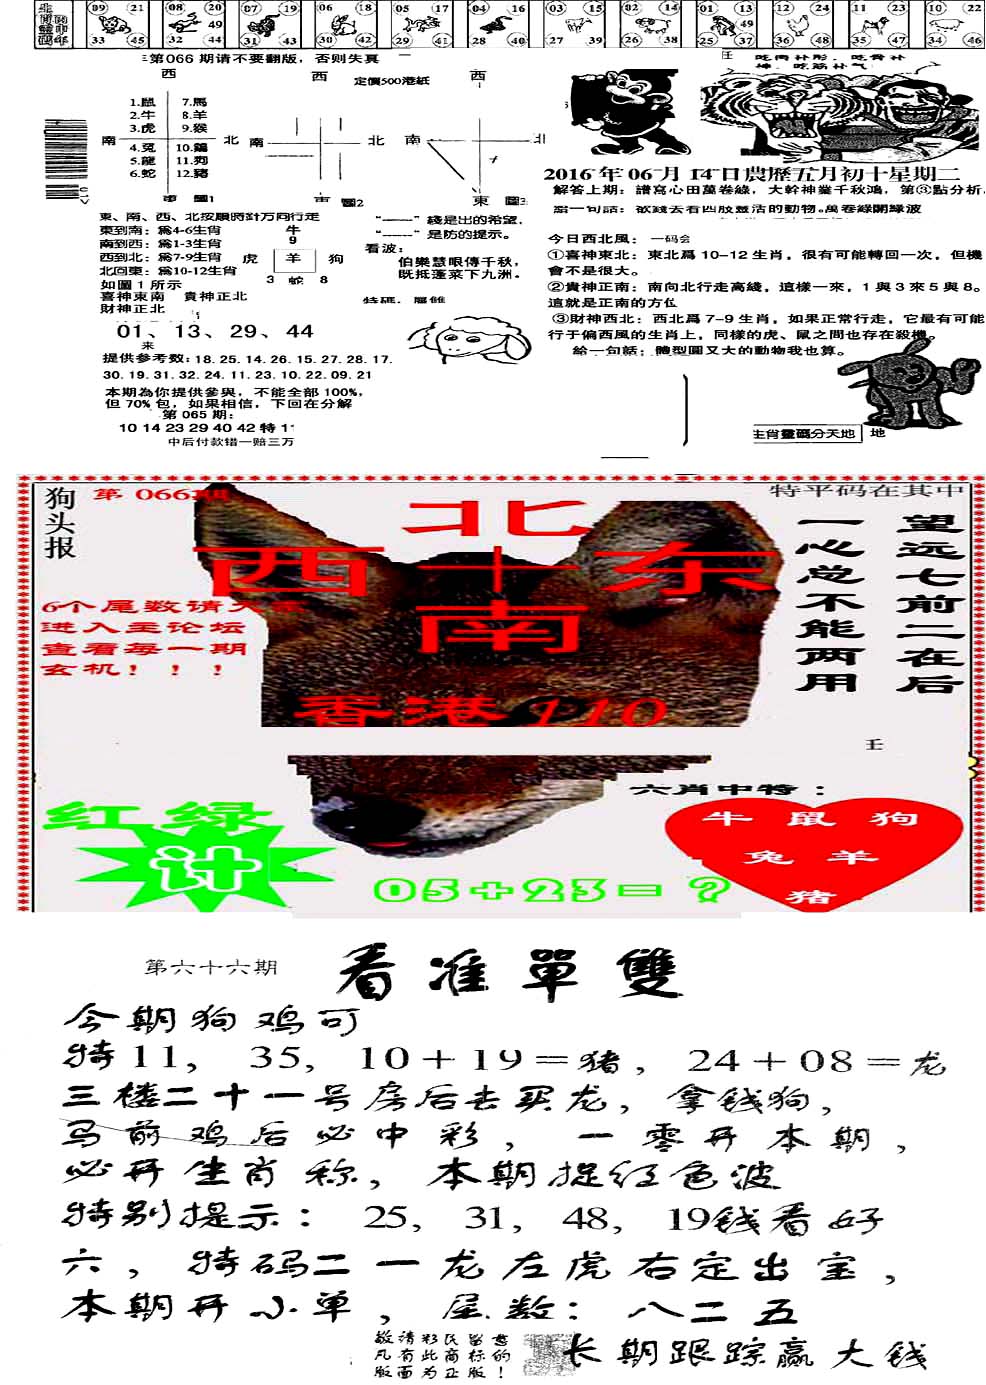 09 21 08 20 07 19 06 18 05 17 04 16 03 15 02 14 01 13 12 24 11 23 10 22
49
33 45 32 44 31 43 30 42 29 41 28 40 27 39 26 38 25 37 36 48 35 47 34 46
第066期请不要翻版，否则失真
西 西 西
定價500港紙
1.鼠 7.馬
2.牛 8.羊
3.虎 9.猴
南 北 南 北 南 北
4.兎 10.鷄
5.龍 11.狗
6.蛇 12.豬
東 圖1 東 圖2 東 圖3
東、南、西、北按順時針方向行走
東到南：爲4-6生肖
南到西：爲1-3生肖
西到北：爲7-9生肖
北回東：爲10-12生肖
如圖1所示
喜神東南 貴神正北
財神正北
牛
9
虎 羊 狗
3 蛇 8
“——” 綫是出的希望，
“——” 是防的提示。
看波：
伯樂慧眼傳千秋，
既抵蓬菜下九洲。
特碼：屬雙
01、13、29、44
来
提供参考数：18.25.14.26.15.27.28.17.
30.19.31.32.24.11.23.10.22.09.21
本期為你提供參與，不能全部100%，
但70%包，如果相信，下回在分解
第065期：
10 14 23 29 40 42 特 1
中后付款错一赔三万
壬
吃肉补形，吃骨补
神，吃筋补气
2016年06月14日農歷五月初十星期二
解答上期：譜寫心田萬卷綠，大幹神業千秋鴻，第③點分析。
給一句話：欲錢去看四肢豐活的動物。萬卷綠開綠波
今日西北風：一码会
①喜神東北：東北爲10-12生肖，很有可能轉回一次，但機
會不是很大。
②貴神正南：南向北行走高綫，這樣一來，1與3來5與8。
這就是正南的方位
③財神西北：西北爲7-9生肖，如果正常行走，它最有可能
行于偏西風的生肖上，同樣的虎、鼠之間也存在殺機。
給一句話：體型圓又大的動物我也算。
生肖靈碼分天地 地
狗头报
第066期
北
西十东
南
香港110
6个尾数请大家
进入主论坛
查看每一期
玄机！！！
特平码在其中
望远七前二在后
一心总不能两用
壬
六肖中特：
牛 鼠 狗
兔 羊
猪
红绿
计
05+23=?
第六十六期
看准單雙
今期狗鸡可
特11, 35, 10+19=猪, 24+08=龙
三楼二十一号房后去买龙, 拿钱狗,
马前鸡后必中彩, 一零开本期,
必开生肖称, 本期捉红色波
特别提示: 25, 31, 48, 19钱看好
六, 特码二一龙左虎右定出宝,
本期开小单, 尾数: 八二五
敬请彩民留意
凡有此商标的
版面为正版！
长期跟踪赢大钱